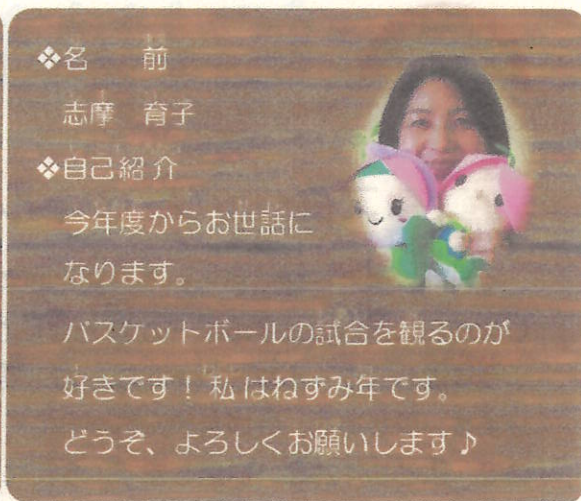 ❖名　前
志摩　育子
❖自己紹介
今年度からお世話に
なります。
バスケットボールの試合を観るのが
好きです！私はねずみ年です。
どうぞ、よろしくお願いします♪